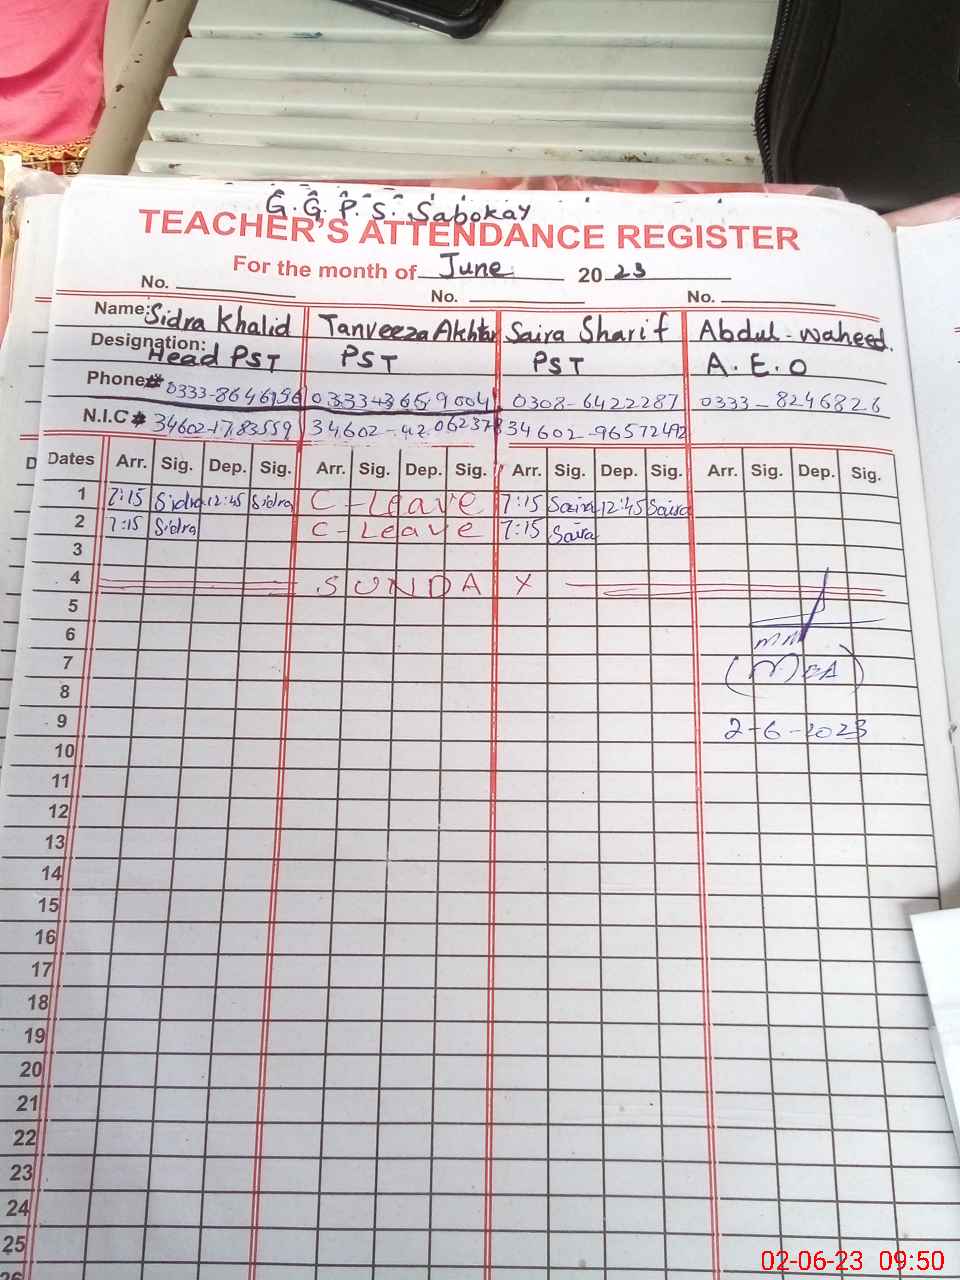 G.G.P.S. Sabokay
TEACHER'S ATTENDANCE REGISTER
For the month of June 2023
No. No. No.
Name: Sidra Khalid Tanveeza Akhtar Saira Sharif Abdul-waheed.
Designation: Head PST PST PST A.E.O
Phone# 0333-8646196 0308-6422287 0333-8246826
N.I.C# 34602-96572492
D Dates Arr. Sig. Dep. Sig. Arr. Sig. Dep. Sig. Arr. Sig. Dep. Sig. Arr. Sig. Dep. Sig.
1 7:15 Sidra 12:45 Sidra C-Leave 7:15 Saira 12:45 Saira
2 7:15 Sidra C-Leave 7:15 Saira
3
4 SUNDAY
5
6
7 (MEA)
8
9 2-6-2023
10
11
12
13
14
15
16
17
18
19
20
21
22
23
24
25
26
02-06-23 09:50